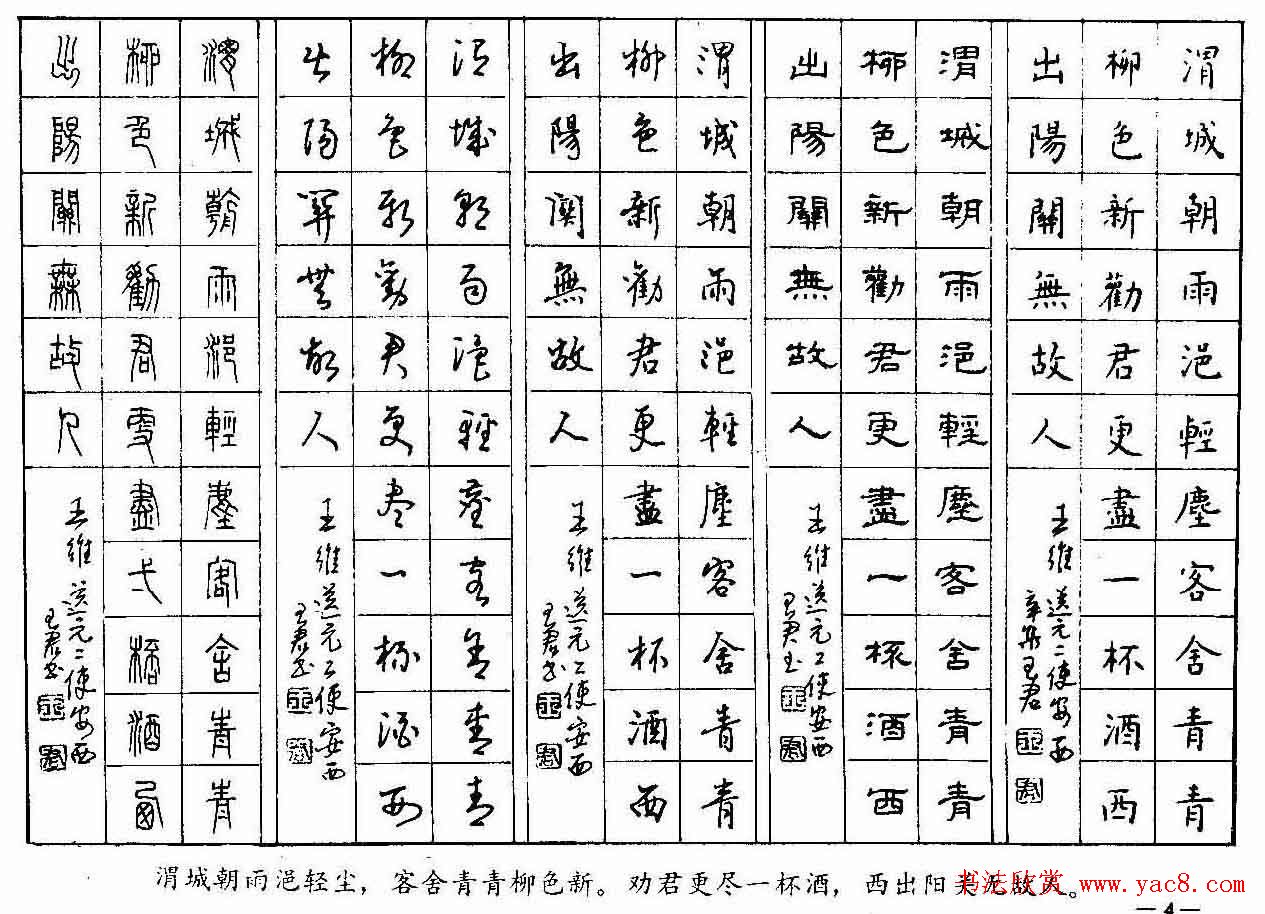 渭城朝雨浥輕塵客舍青青
柳色新勸君更盡一杯酒西
出陽關無故人
王維
送元二使安西
王君
渭城朝雨浥輕塵客舍青青
柳色新勸君更盡一杯酒西
出陽關無故人
王維
送元二使安西
王君書
渭城朝雨浥輕塵客舍青青
柳色新勸君更盡一杯酒西
出陽關無故人
王維
送元二使安西
王君書
渭城朝雨浥輕塵客舍青青
柳色新勸君更尽一杯酒西
出陽關無故人
王維
送元二使安西
王君書
渭城朝雨浥輕塵客舍青青
柳色新勸君更盡一杯酒西
出陽關無故人
王維
送元二使安西
王君書
渭城朝雨浥轻尘，客舍青青柳色新。劝君更尽一杯酒，西出阳关无故人。
书法欣赏 www.yac8.com
—4—